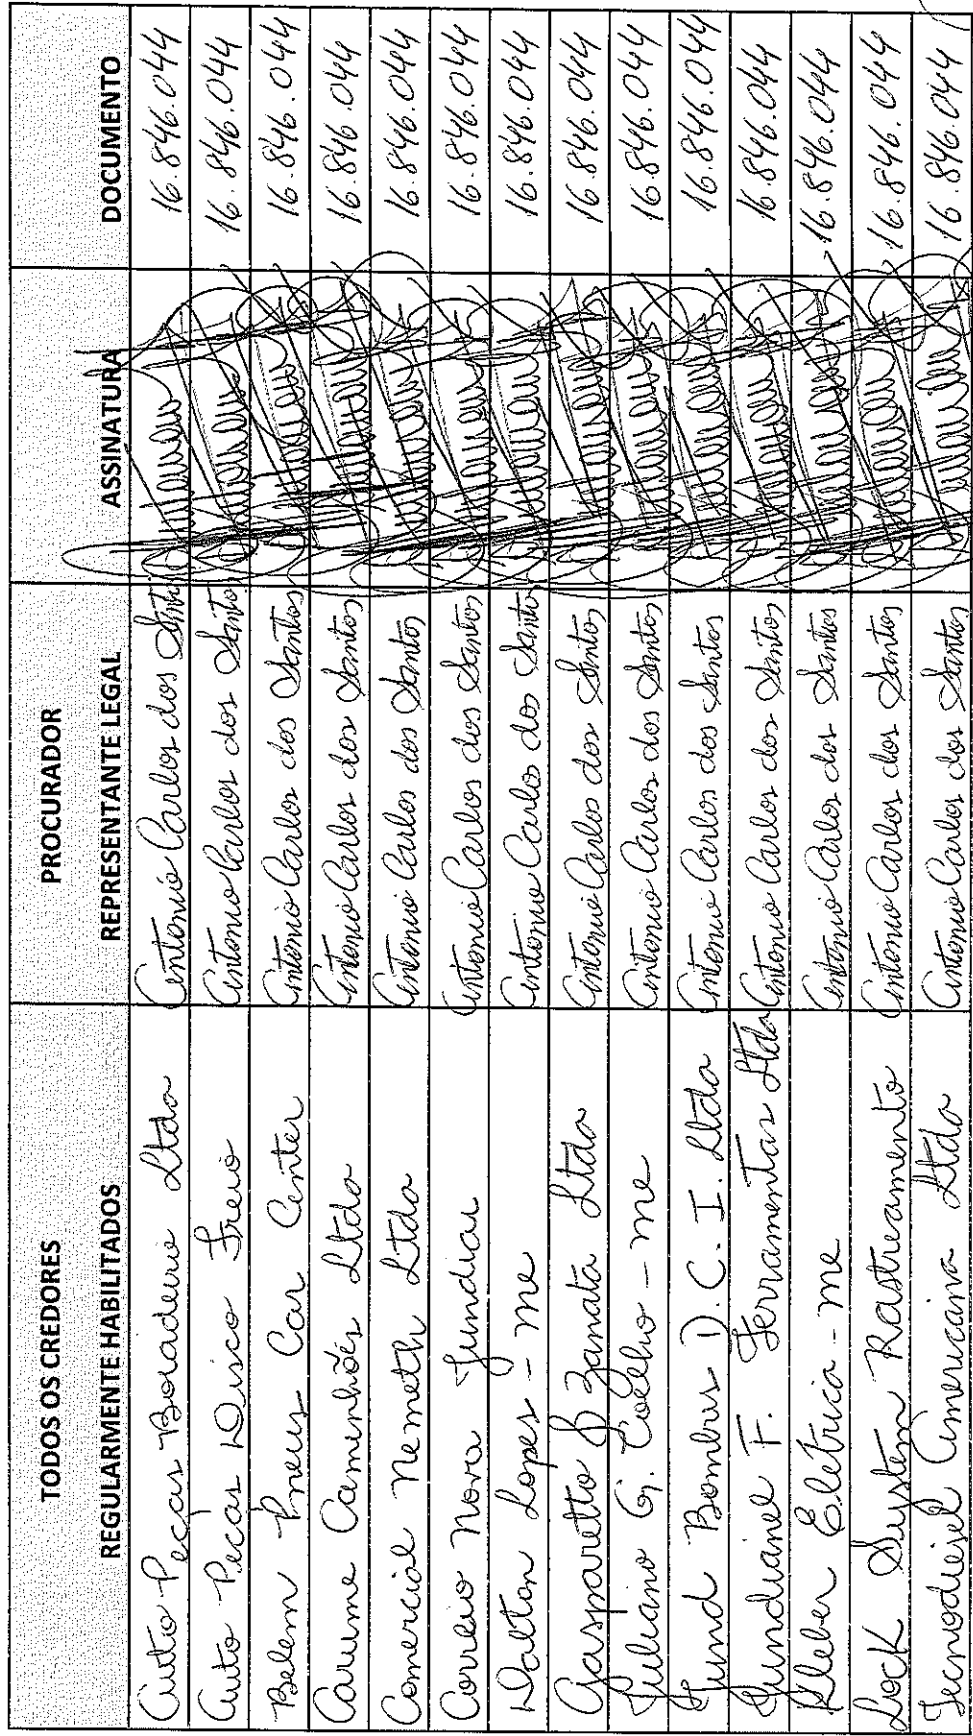 TODOS OS CREDORES PROCURADOR
REGULARMENTE HABILITADOS REPRESENTANTE LEGAL ASSINATURA DOCUMENTO
Auto Pecas Boiadeiro Ltda Antonio Carlos dos Santos 16.846.044
Auto Pecas Disco Freio Antonio Carlos dos Santos 16.846.044
Belem Pneus Car Center Antonio Carlos dos Santos 16.846.044
Carume Caminhões Ltda Antonio Carlos dos Santos 16.846.044
Comercial Nemeth Ltda Antonio Carlos dos Santos 16.846.044
Correio Nova Jundiai Antonio Carlos dos Santos 16.846.044
Dalton Lopes - me Antonio Carlos dos Santos 16.846.044
Gasparetto & Zanata Ltda Antonio Carlos dos Santos 16.846.044
Juliano G. Coelho - me Antonio Carlos dos Santos 16.846.044
Jund Bombus D. C. I. Ltda Antonio Carlos dos Santos 16.846.044
Jundianel F. Ferramentas Ltda Antonio Carlos dos Santos 16.846.044
Kleber Eletrica - me Antonio Carlos dos Santos 16.846.044
Lock System Rastreamento Antonio Carlos dos Santos 16.846.044
Tecnodiesel Americana Ltda Antonio Carlos dos Santos 16.846.044